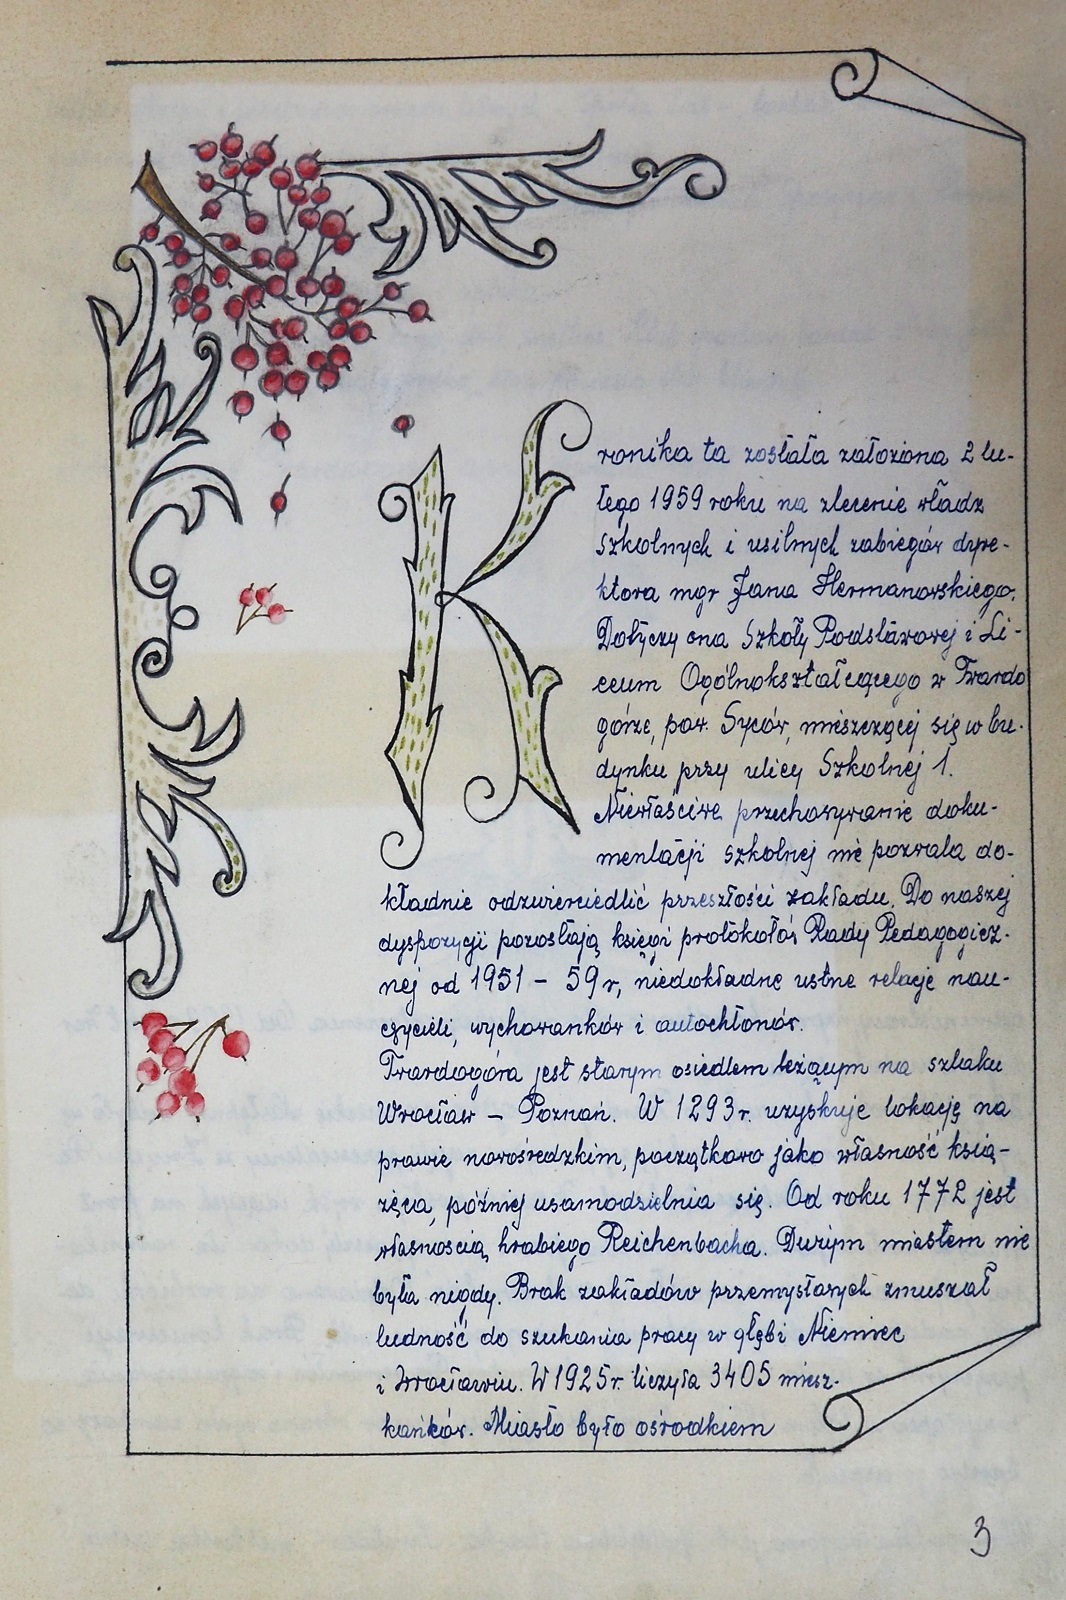 Kronika ta została założona 2 lu-
tego 1959 roku na zlecenie władz
szkolnych i usilnych zabiegów dyre-
ktora mgr Jana Hermanowskiego.
Dotyczy ona Szkoły Podstawowej i Li-
ceum Ogólnokształcącego w Twardo
górze, pow. Syców, mieszczącej się w bu-
dynku przy ulicy Szkolnej 1.
Niewłaściwe przechowywanie doku-
mentacji szkolnej nie pozwala do-
kładnie odzwierciedlić przeszłości zakładu. Do naszej
dyspozycji pozostają księgi protokołów Rady Pedagogicz-
nej od 1951 - 59 r, niedokładne ustne relacje nau-
czycieli, wychowanków i autochtonów.
Twardogóra jest starym osiedlem leżącym na szlaku
Wrocław - Poznań. W 1293 r. uzyskuje lokację na
prawie nowośredzkim, początkowo jako własność ksią-
żęca, później usamodzielnia się. Od roku 1772 jest
własnością hrabiego Reichenbacha. Dużym miastem nie
była nigdy. Brak zakładów przemysłowych zmuszał
ludność do szukania pracy w głębi Niemiec
i Wrocławiu. W 1925 r. liczyła 3405 miesz-
kańców. Miasto było ośrodkiem
3